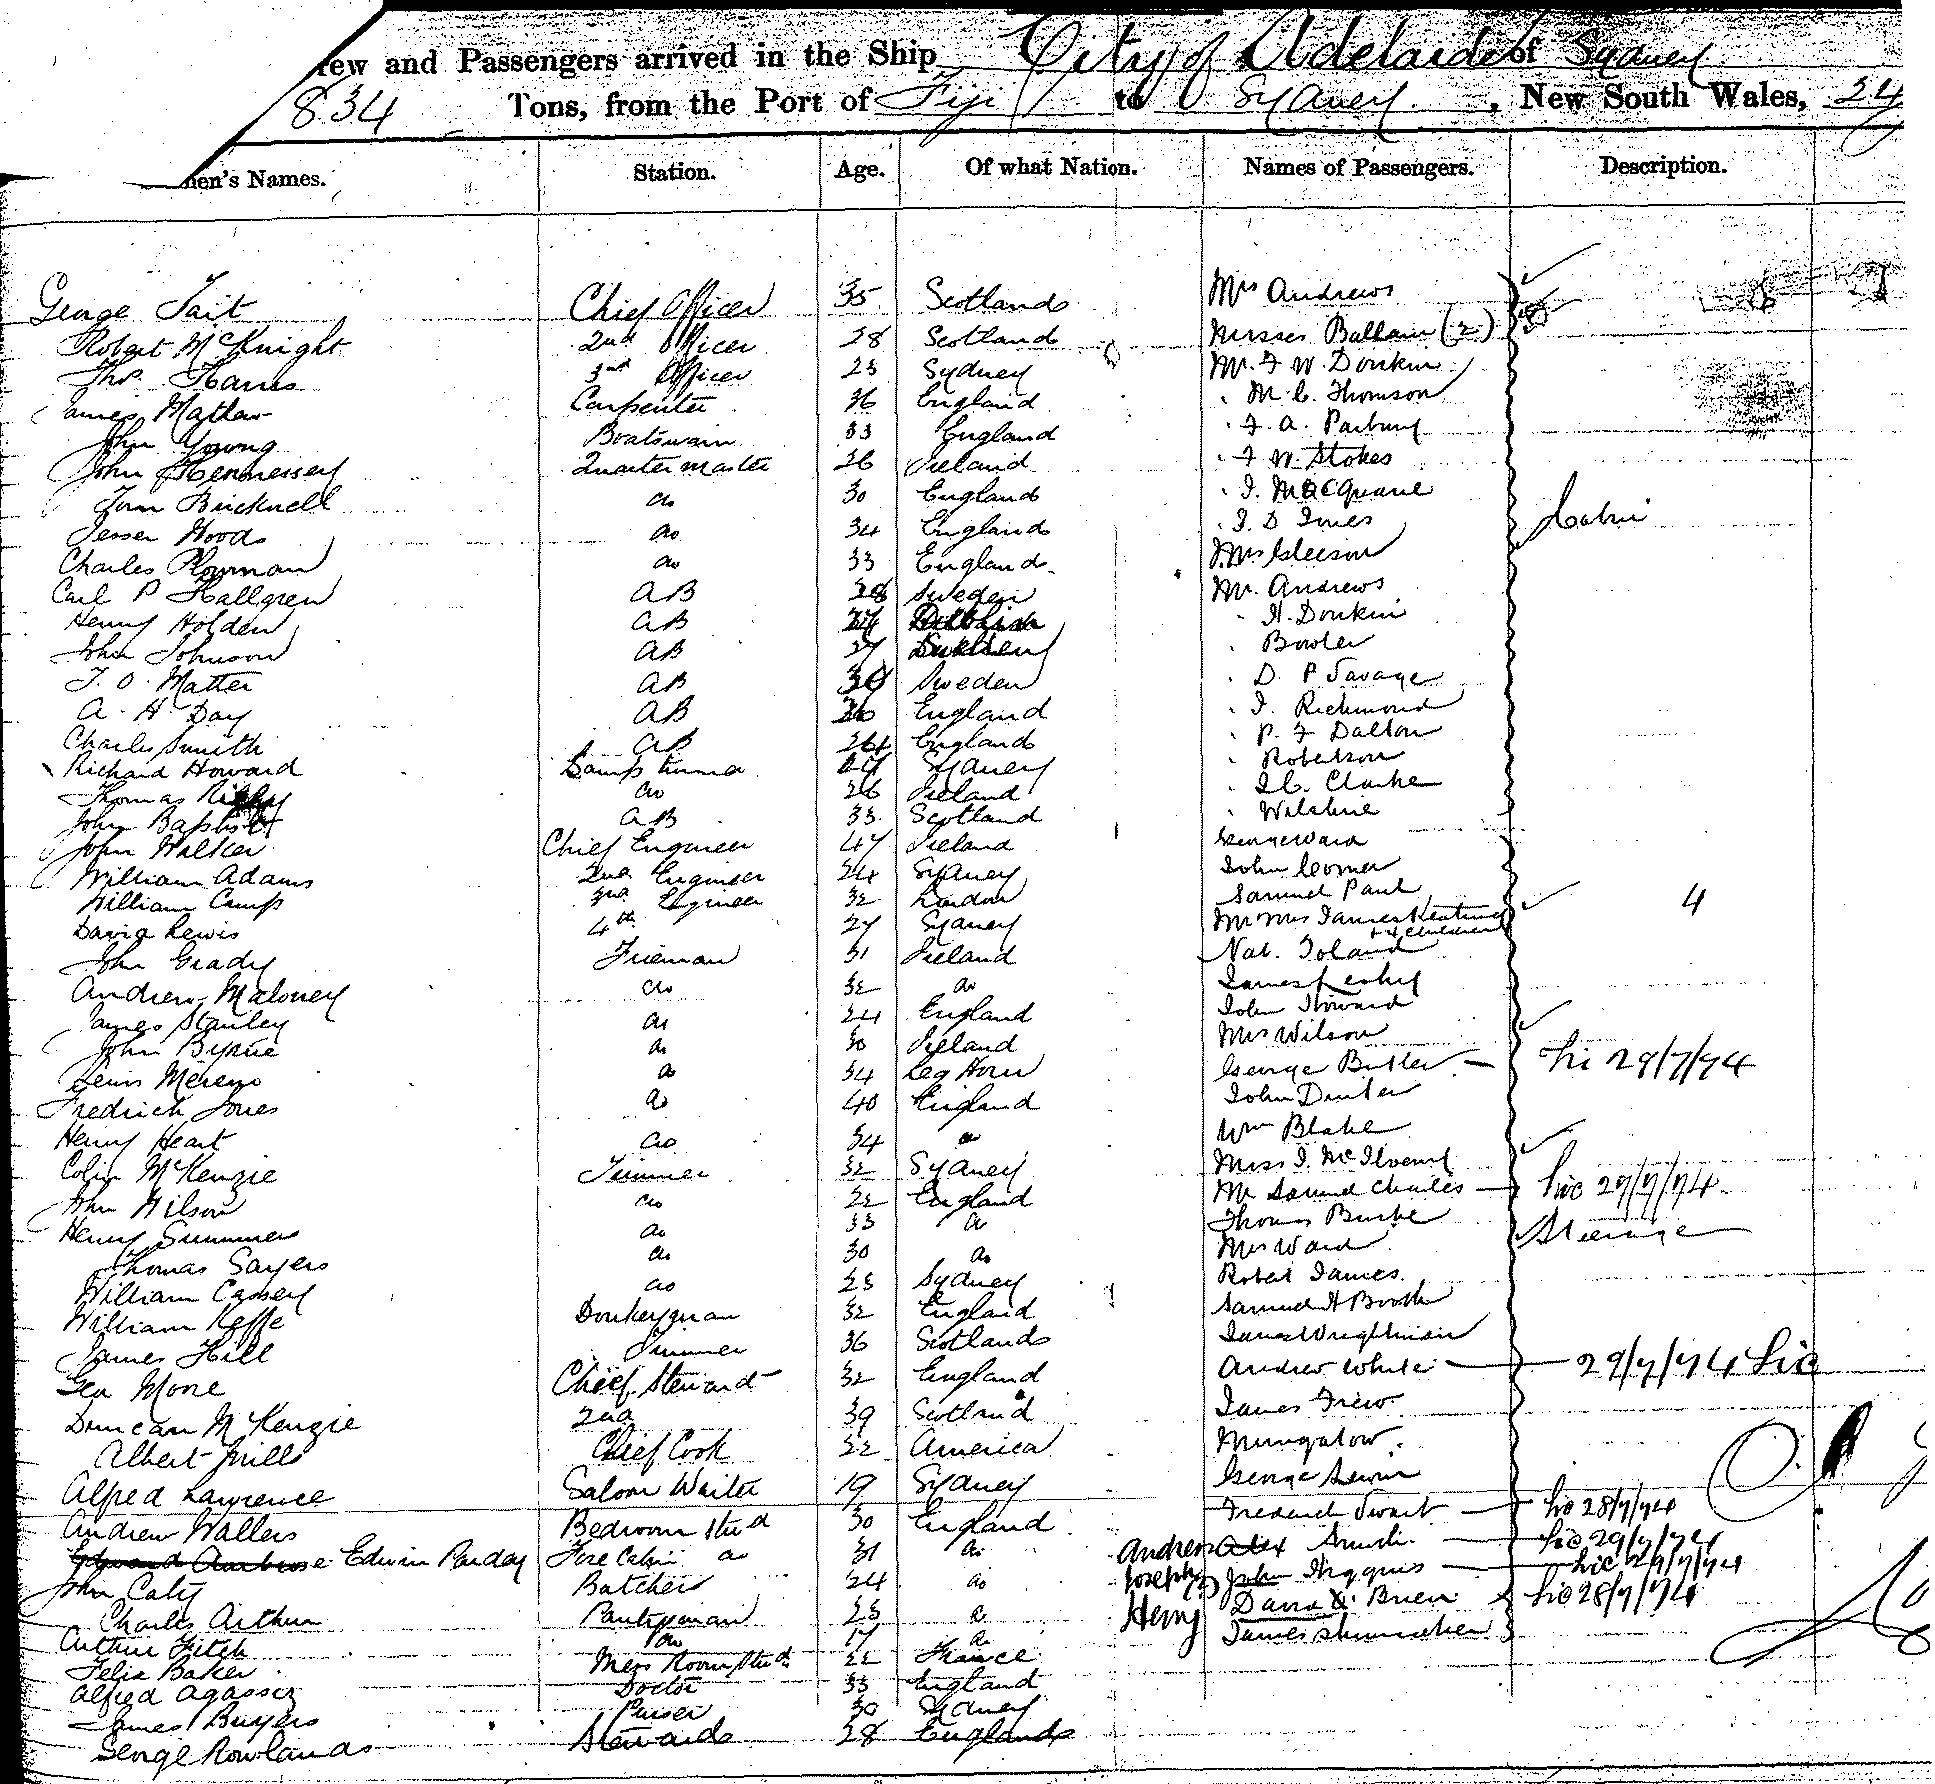 rew and Passengers arrived in the Ship City of Adelaide of Sydney
834 Tons, from the Port of Fiji to Sydney, New South Wales, 24
men's Names. Station. Age. Of what Nation. Names of Passengers. Description.
George Tait Chief Officer 35 Scotland Mrs Andrews
Robert McKnight 2nd Officer 28 Scotland Misses Ballain (2)
Thos. Harris 3rd Officer 23 Sydney Mr. F W. Donkin
James Matlaw Carpenter 36 England " M. C. Thomson
John Young Boatswain 33 England " F. A. Parbury
John Hennessey Quartermaster 26 Ireland " F W. Stokes
Tom Bricknell do 30 England " J. MacQuarie
Jesser Hoods do 34 England " J. D Innes Cabin
Charles Plowman do 33 England Mrs Gleeson
Carl P Hallgren AB 28 Sweden Mr. Andrews
Henry Holden AB " H. Donkin
John Johnson AB 27 " Bowler
J. O. Matter AB 30 Sweden " D. P Savage
A. H Day AB England " J. Richmond
Charles Smith AB 24 England " P. F Dalton
Richard Howard Lamp trimmer Sydney " Robertson
Thomas do 26 Ireland " J. C. Clarke
John Baptist AB 33 Scotland " Wilshire
John Walker Chief Engineer 47 Ireland George Ward
William Adams 2nd Engineer 24 Sydney John
William Camp 3rd Engineer 32 London Samuel Paul 4
David Lewis 4th 27 Sydney Mr Mrs James Keating + 4 children
John Grady Fireman 31 Ireland Nat. Toland
Andrew Maloney do 32 do James Leahy
James Stanley do 24 England John Howard
John Byrne do 30 Ireland Mrs Wilson
Lewis Mereno do 34 Leg Horn George Butler 29/7/74
Fredrick Jones do 40 England John
Henry Heart do 34 do Wm Blake
Colin McKenzie Trimmer 32 Sydney Miss J. McIlveny
John Wilson do 22 England Mr Samuel Charles 29/7/74
Henry Summers do 33 do Thomas Burke Steerage
Thomas Sayers do 30 do Mrs Ward
William Cassey do 23 Sydney Robert James
William Keffe Donkeyman 32 England Samuel H Booth
James Hill Trimmer 36 Scotland James Wrightman
Geo Moore Chief Steward 32 England Andrew White 29/7/74
Duncan McKenzie 2nd 39 Scotland James Frew
Albert Mills Chief Cook 22 America Mungalow
Alfred Lawrence Saloon Waiter 19 Sydney George
Andrew Wallers Bedroom Stwd 30 England Frederick 28/7/74
Edward Ambrose Edwin Panday Fore Cabin do 31 do Andrew Alex 29/7/74
John Caty Butcher 24 do Joseph John Higgins 29/7/74
Charles Arthur Pantryman 23 do Henry David O'Brien 28/7/74
Arthur Fitch do 17 do James Shumacher
Felix Baker Mess Room Stwd 22 France
Alfred Agassiz Doctor 33 England
James Buyers Purser 30 Sydney
George Rowlands Stewards 28 England